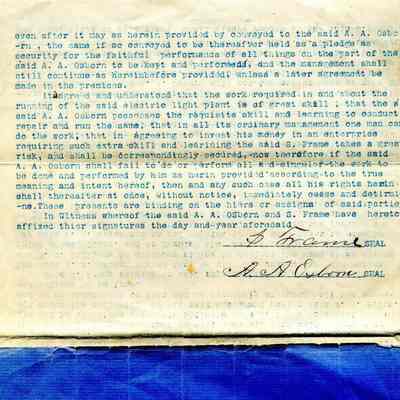 even after it may as herein provided by conveyed to the said A. A. Osbo
-rn , the same if so conveyed to be thereafter held as a pledge as
security for the faithful performance of all things on the part of the
said A. A. Osborn to be kept and performed, and the management shall
still continue as hereinbefore provided, unless a later agreement be
made in the premises.
agreed and understood that the work required in and about the
running of the said electric light plant is of great skill ; that the s
said A. A. Osborn possesses the requisite skill and learning to conduct
repair and run the same, that in all its ordinary management one man can
do the work; that in agreeing to invest his money in an enterprise
requiring such extra skill and learning the said S. Frame takes a great
risk, and shall be correspondingly secured, now therefore if the said
A. A. Osborn shall fail to do or perform all and singular the work to
be done and performed by him as herin provided according to the true
meaning and intent hereof, then and any such case all his rights herein
shall thereafter at once, without notice, immediately cease and determi
-ne. These presents are binding on the hiers or assigns of said parties
In Witness whereof the said A. A. OSborn and S. Frame have hereto
affixed thier signatures the day and year aforesaid
S Frame SEAL
A. A Osborn SEAL